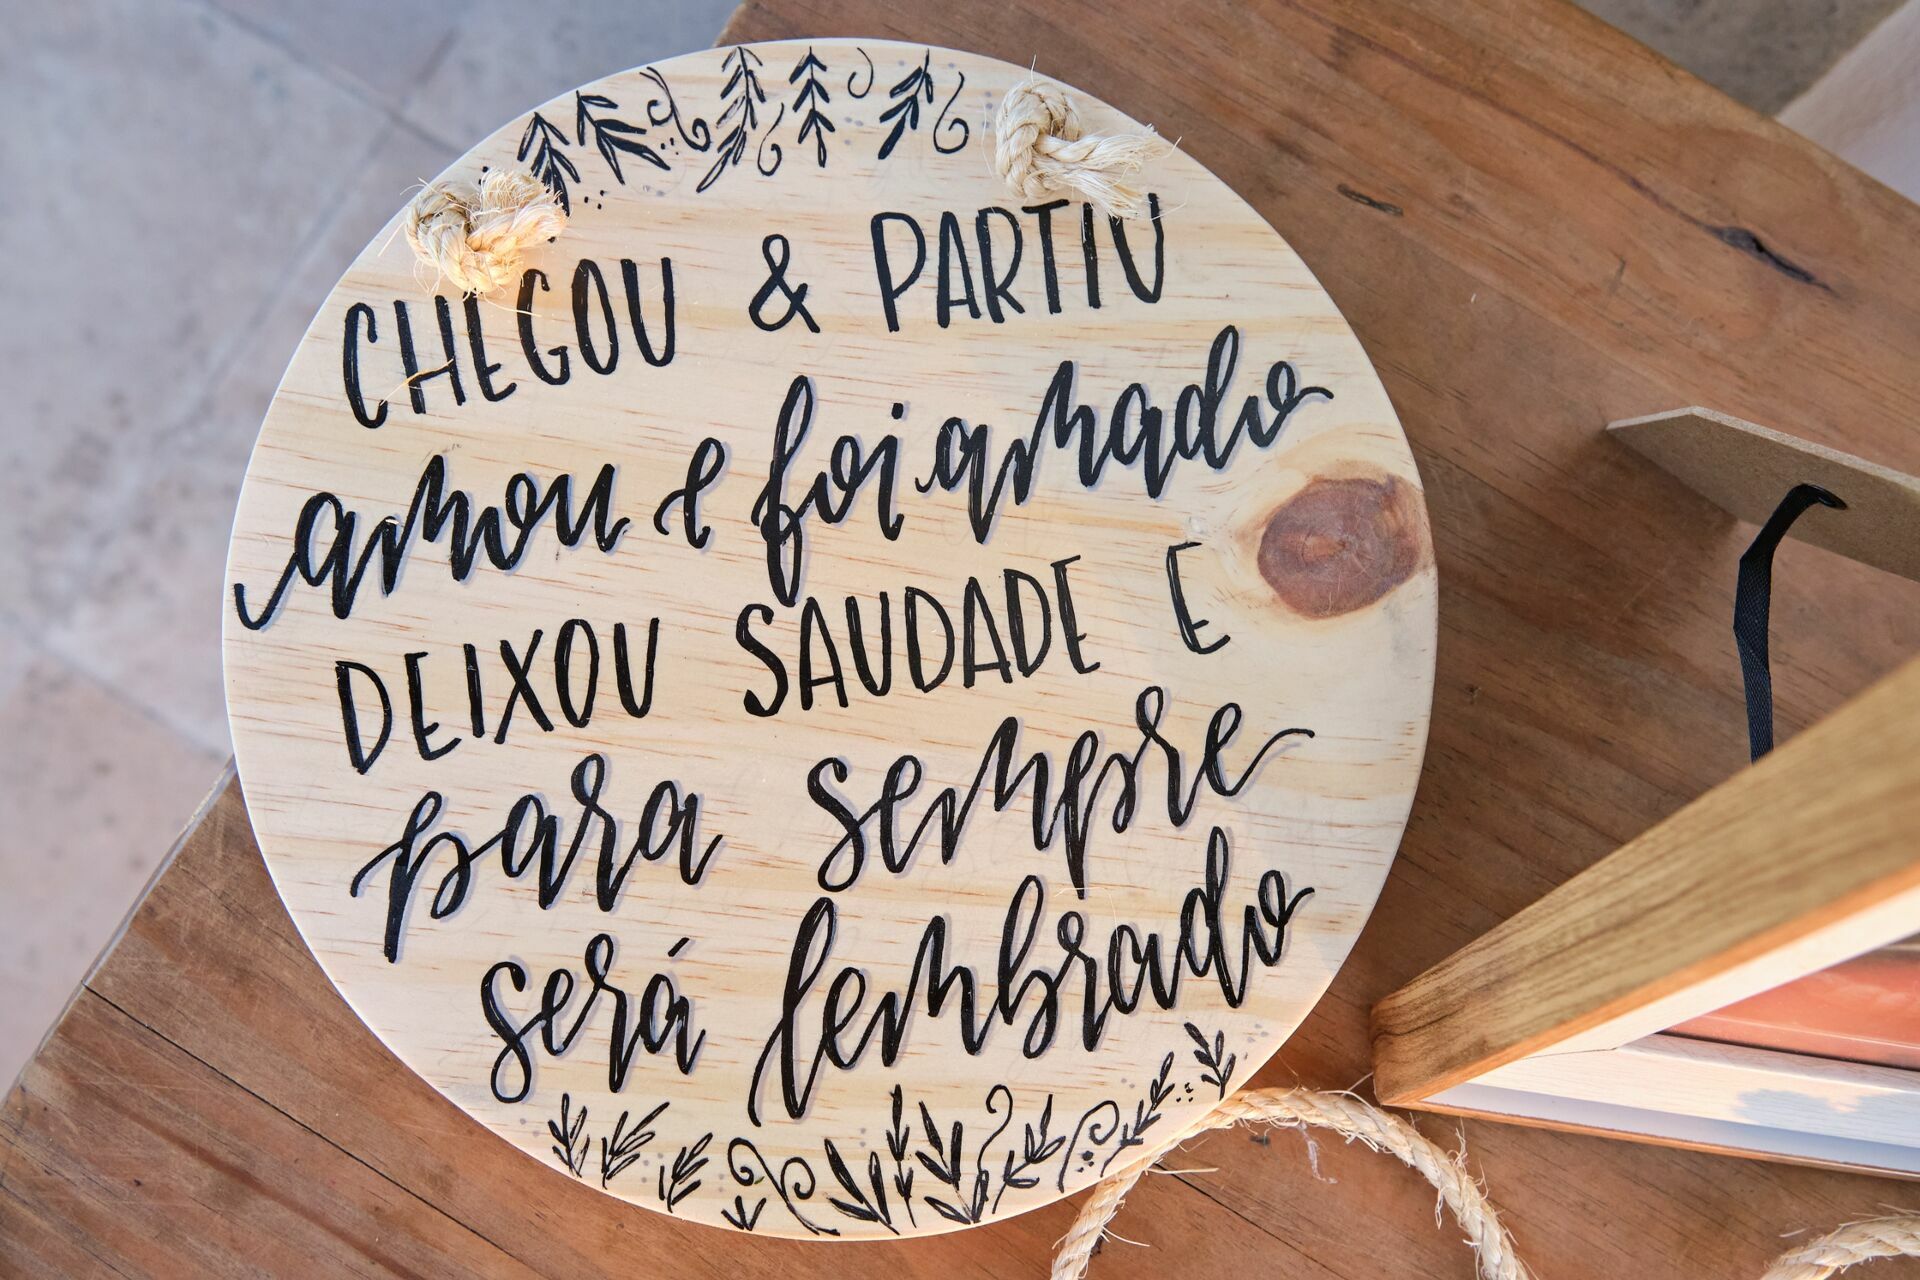 CHEGOU & PARTIU
amou e foi amado
DEIXOU SAUDADE E
para sempre
será lembrado